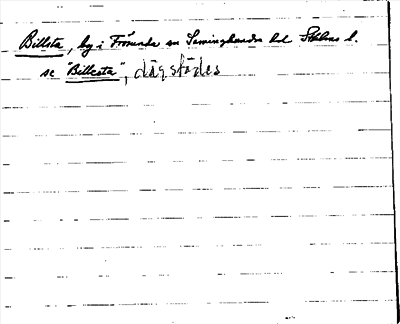 Billsta, by i Frösunda sn Seminghundra hd Sthlms l.
se "Billesta", däg. städes